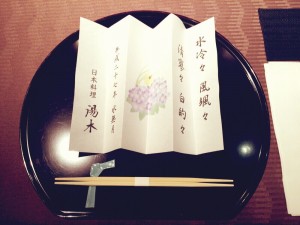 水冷々 風颯々
白的々
平成二十七年 水無月
日本料理 湯木